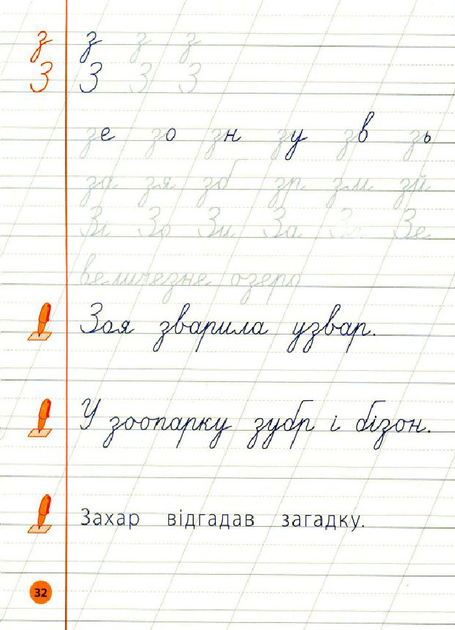 з з з з
З З З З
зе зо зн зу зв зь
за зя зб зр зм зй
Зі Зо Зи За Зе
величезне озеро
Зоя зварила узвар.
У зоопарку зубр і бізон.
Захар відгадав загадку.
32